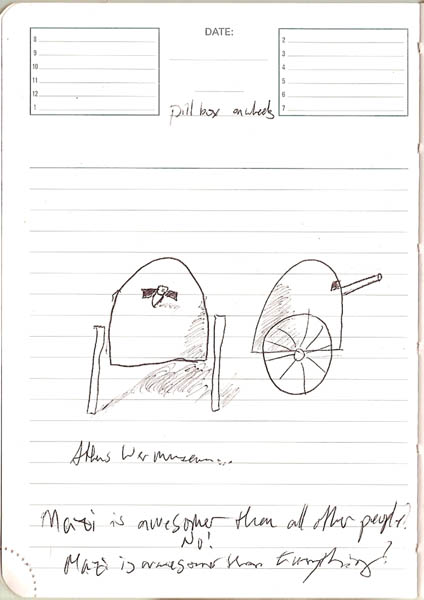 DATE:
8
9
10
11
12
1
2
3
4
5
6
7
pill box on wheels
Athens War museum...
Mazi is awesomer than all other people?
No!
Mazi is awesomer than Everything!